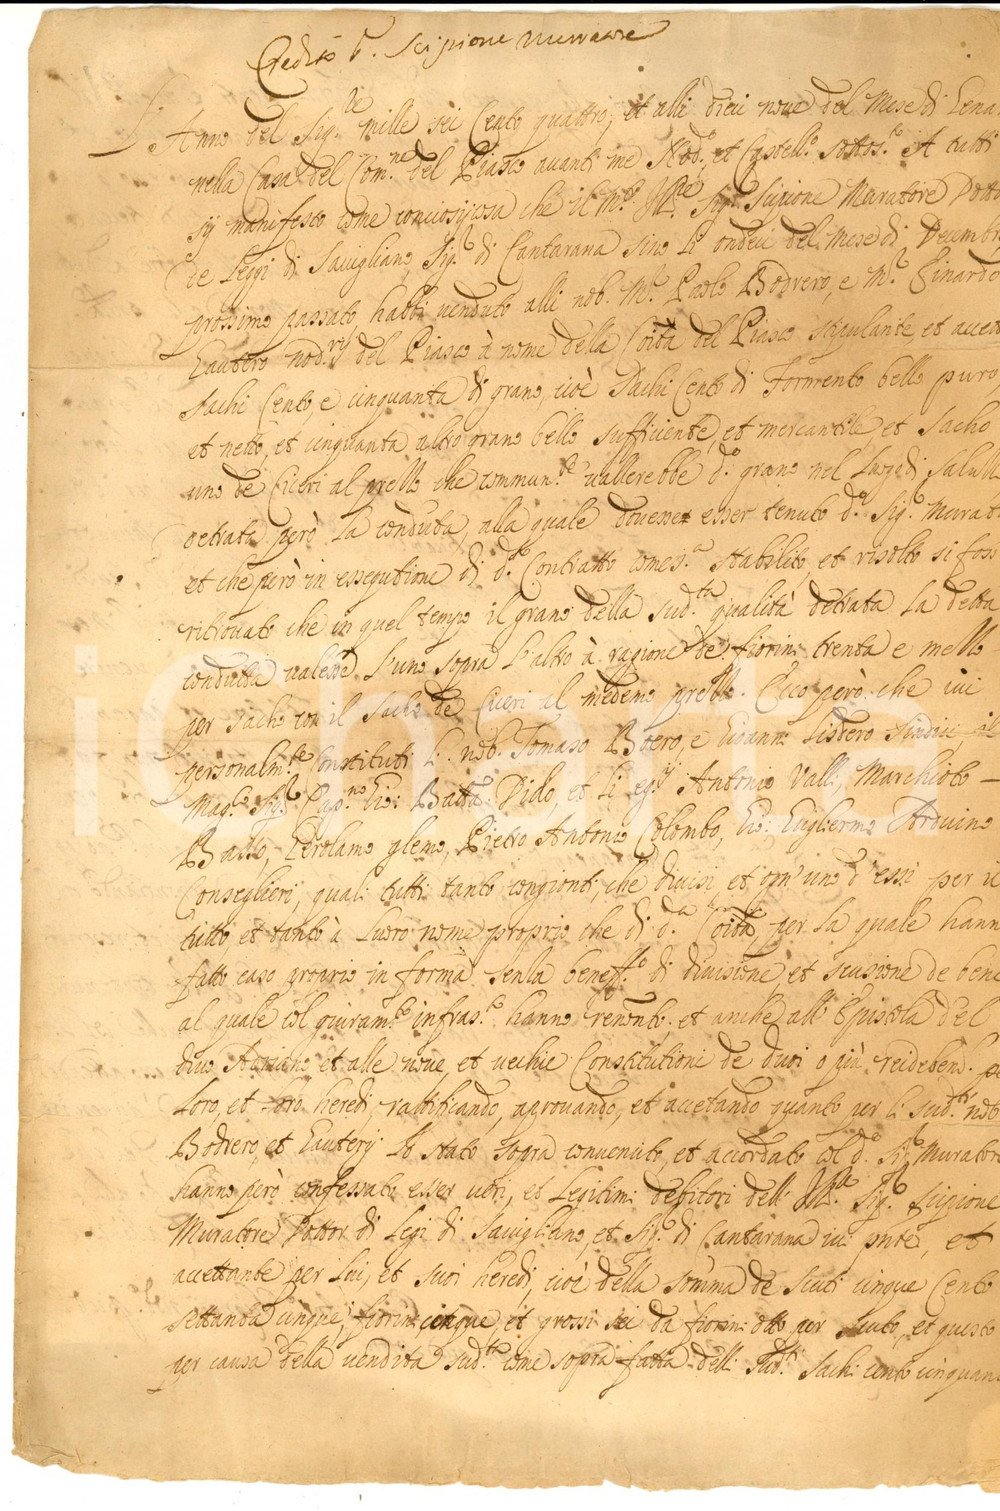 Credito b. Scipione Muratore
L'Anno del Sig.re mille sei Cento quattro, et alli dieci nove del Mese di Gena
nella Casa del Com.ne del Piasco avanti me Nod.o, et Castell.o sottos.to A tutti
sij manifesto come conciosijcosa che il M.to Ill.re Sig.r Scipione Muratore Dotto
de Leggi di Savigliano, Sig.r di Cantarana sino li ondeci del Mese di Decembre
prossimo passato, habbi venduto alli nob. M.r Paolo Bodrero, e M.r Ginardo
Gautero nod.rij del Piasco à nome della Coità del Piasco stipulante, et accett
sachi Cento, e cinquanta di grano, cioè sachi Cento di Formento bello puro
et netto, et cinquanta altro grano bello sufficiente, et mercantile, et sacho
uno de Ciceri al prezzo che commun.te vallerebbe d.o grano nel Luogo di Saluzz
detrata però la condotta, alla quale dovesse esser tenuto d.o Sig.r Murat
et che però in essegutione di d.o Contratto come s.a stabilito, et risolto si foss
ritrovato che in quel tempo il grano della sud.ta qualità detrata la detta
condotta valesse l'uno sopra l'altro à ragione de fiorini trenta e mezzo
per sacho con il sacho de Ciceri al medemo prezzo. Ecco però che ivi
personalm.te Constituti li nob. Tomaso Boero, e Gioanni Listero Sindici, il
Mag.co Sig.r Cap.no Gio: Batta Dido, et li eg.ij Antonio Valli, Marchioto
Basso, Gerolamo glemo, Pietro Antonio Colombo, Gio: Guglielmo Arduino
Conseglieri, quali tutti tanto congionti, che divisi, et ogn'uno d'essi per il
tutto, et tanto à Loro nome proprio che di d.a Coità, per la quale hann
fatto caso proprio in forma senza benef.o di divisione, et scusione de beni
al quale col giuram.to infras.to hanno renontio et anche all'Epistola del
divo Adriano et alle nove, et vechie Constitutioni de duoi o più rei debend. p
Loro, et loro heredi, rattificando, aprovando, et accetando quanto per li sud.ti nob
Bodrero, et Gauterij è stato sopra convenuto, et accordato col d.o Sig.r Muratore
hanno però confessato esser veri, et legitimi debitori dell' Ill.re Sig.r Scipione
Muratore Dottor di Legi di Savigliano, et Sig.r di Cantarana ivi pnte, et
accettante per Lui, et suoi heredi, cioè della somma de scuti cinque Cento
settanta cinque, fiorini cinque, et grossi sei da fiorini otto per scuto, et questo
per causa della vendita sud.ta come sopra fatta delli sud.ti sachi cento cinquan